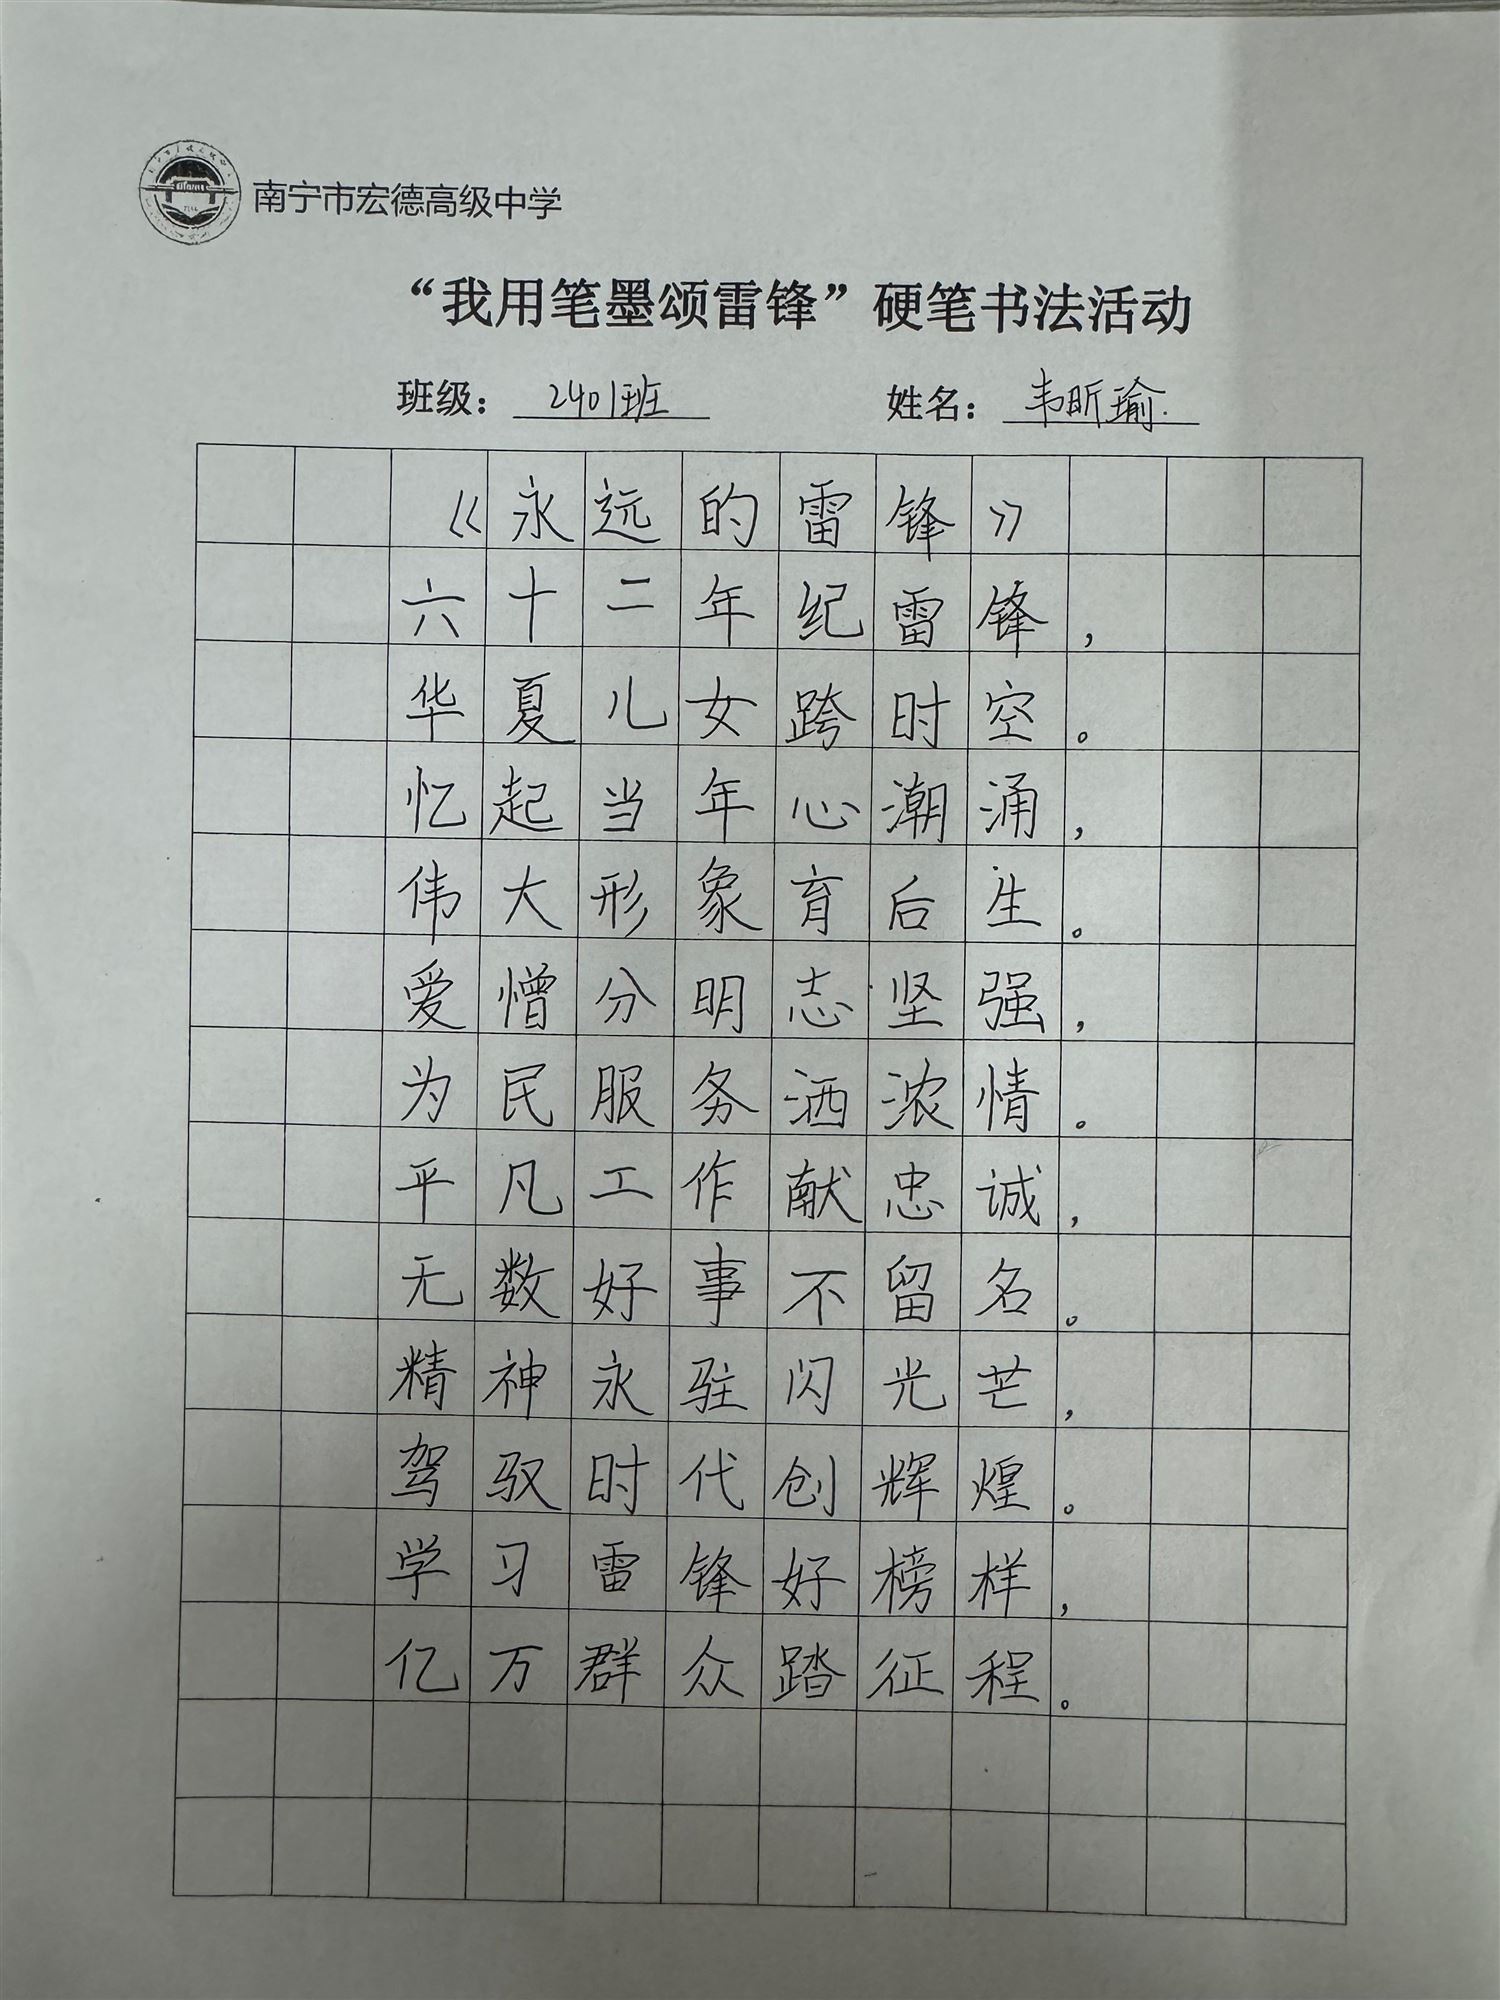 南宁市宏德高级中学
“我用笔墨颂雷锋”硬笔书法活动
班级：2401班 姓名：韦昕瑜.
《永远的雷锋》
六十二年纪雷锋，
华夏儿女跨时空。
忆起当年心潮涌，
伟大形象育后生。
爱憎分明志坚强，
为民服务洒浓情。
平凡工作献忠诚，
无数好事不留名。
精神永驻闪光芒，
驾驭时代创辉煌。
学习雷锋好榜样，
亿万群众踏征程。